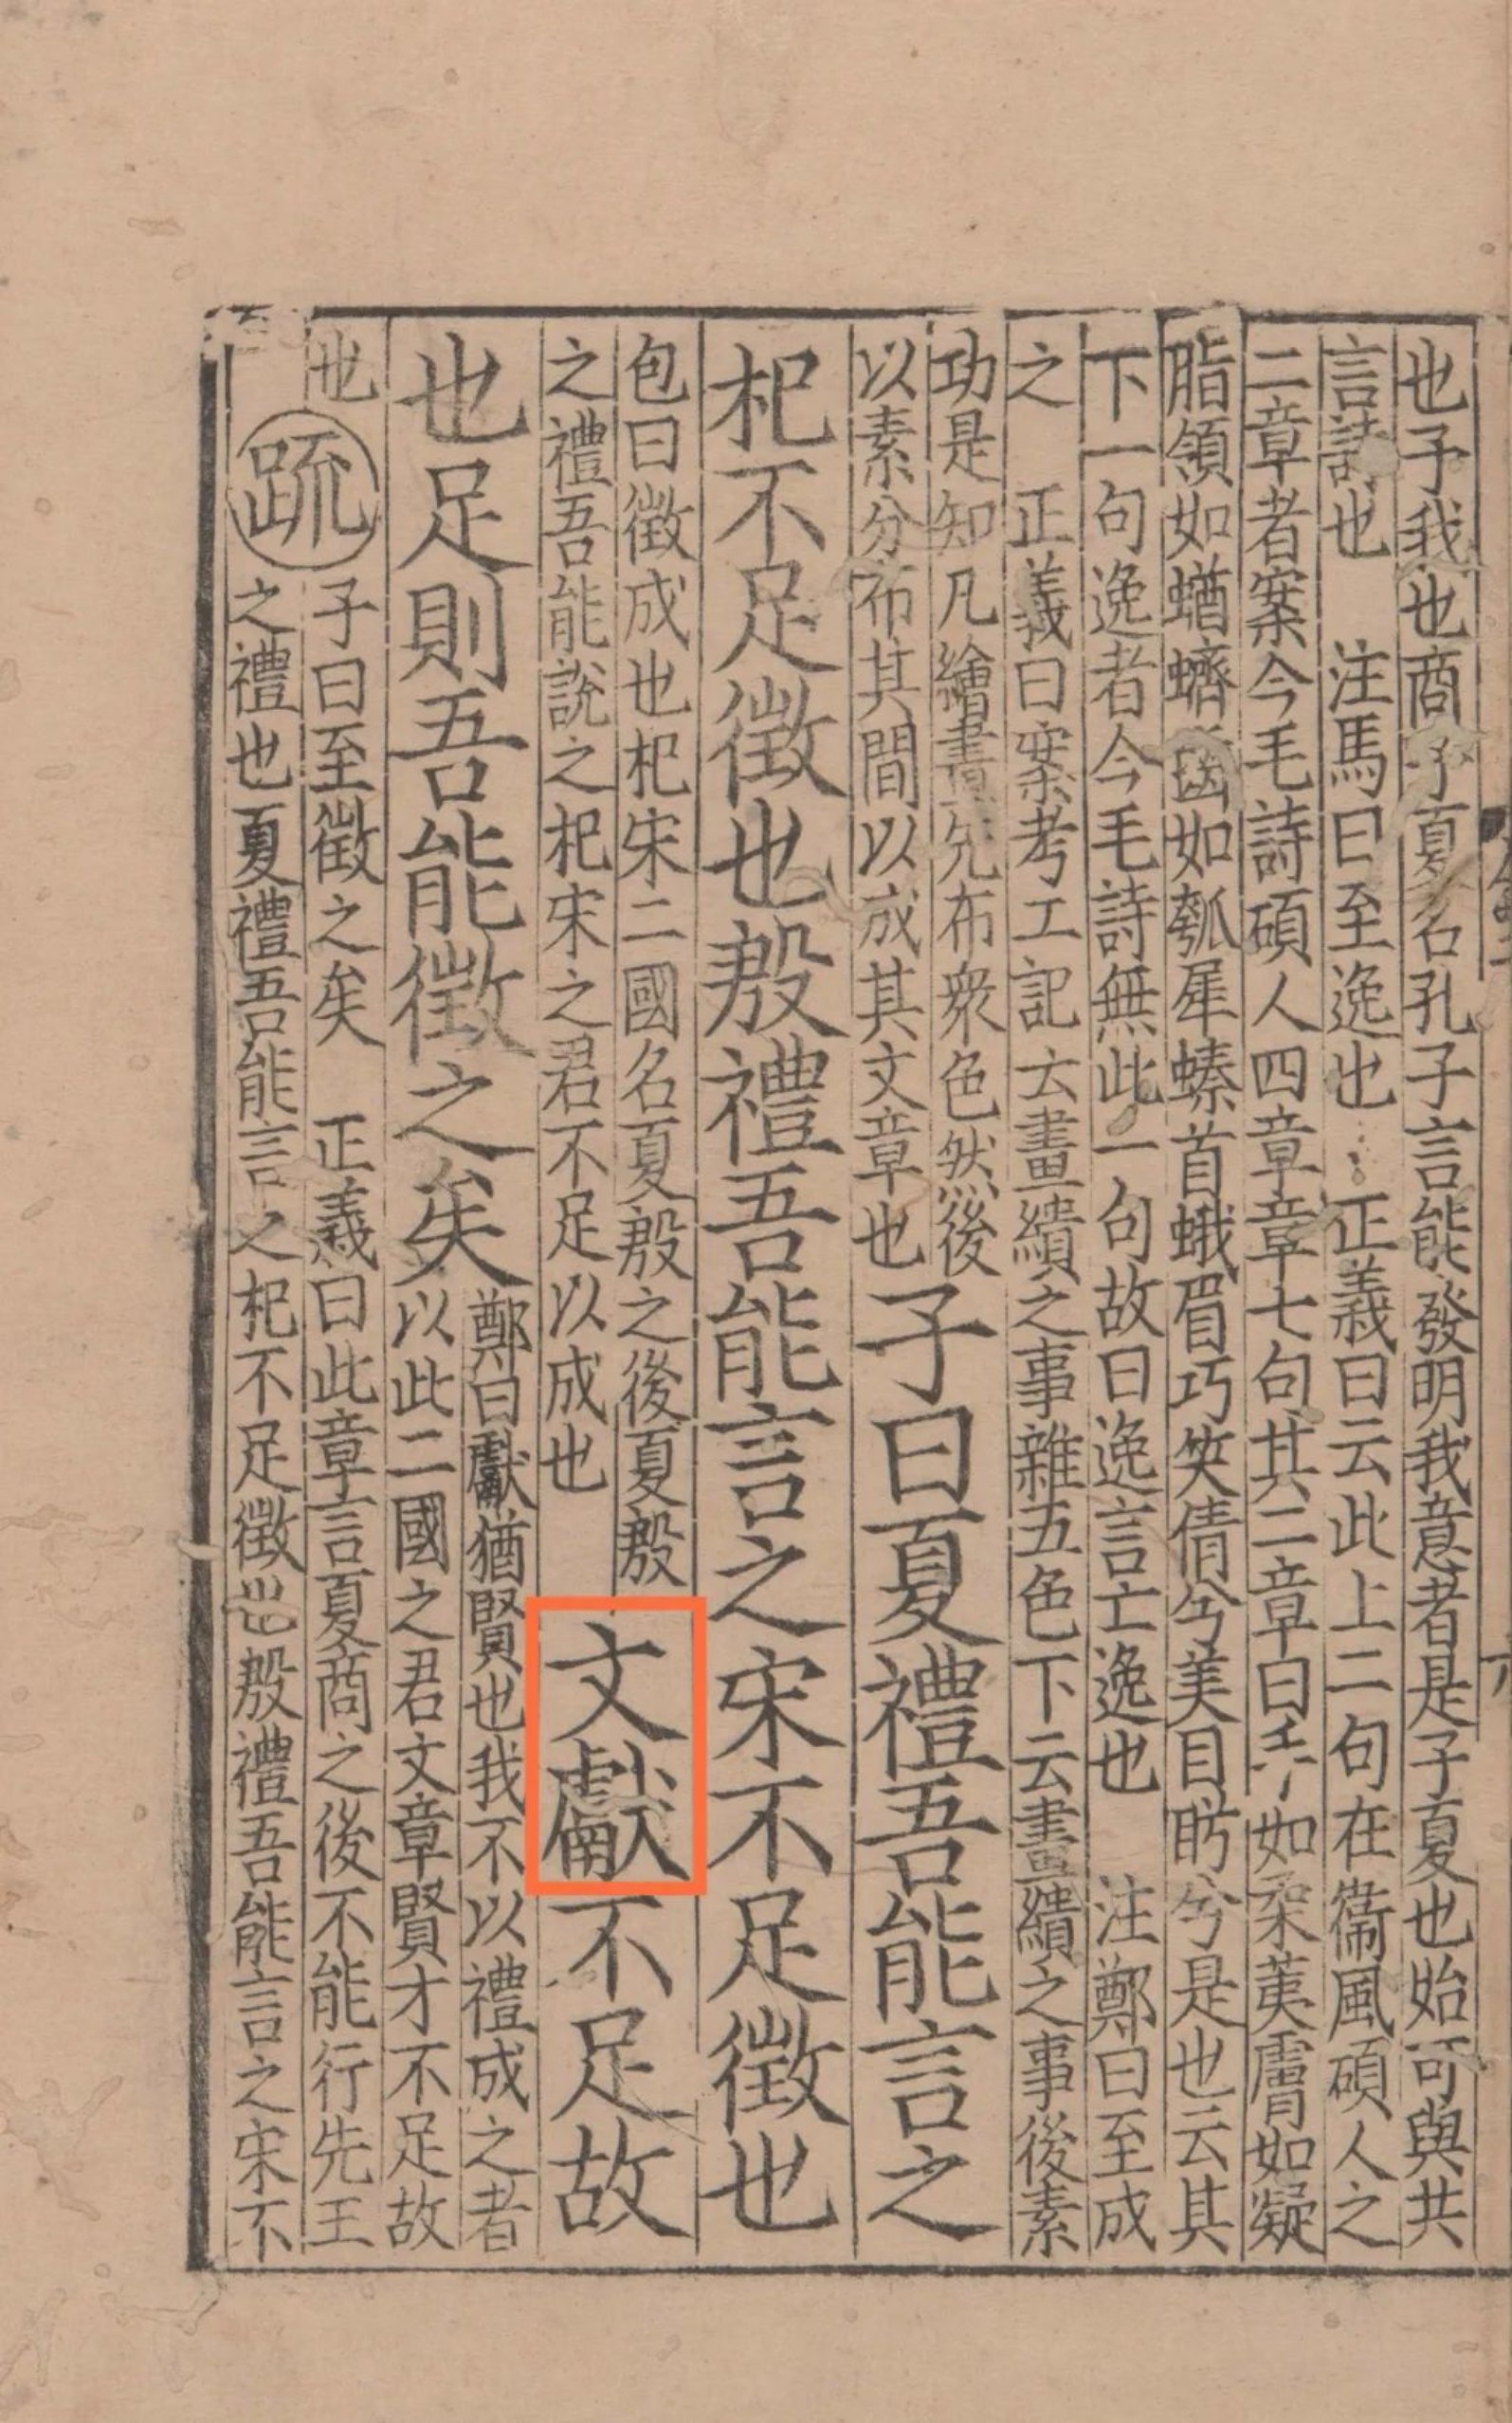 也予我也商子夏名孔子言能發明我意者是子夏也始可與共
言詩也　注馬曰至逸也　正義曰云此上二句在衞風碩人之
二章者案今毛詩碩人四章章七句其二章曰手如柔荑膚如凝
脂領如蝤蠐齒如瓠犀螓首蛾眉巧笑倩兮美目盼兮是也云其
下一句逸者今毛詩無此一句故曰逸言亡逸也　注鄭曰至成
之　正義曰案考工記云畫繢之事雜五色下云畫繢之事後素
功是知凡繪畫先布衆色然後
以素分布其間以成其文章也
子曰夏禮吾能言之
杞不足徵也殷禮吾能言之宋不足徵也
包曰徵成也杞宋二國名夏殷之後夏殷
之禮吾能說之杞宋之君不足以成也
文獻不足故
也足則吾能徵之矣
鄭曰獻猶賢也我不以禮成之者
以此二國之君文章賢才不足故
也
疏
子曰至徵之矣　正義曰此章言夏商之後不能行先王
之禮也夏禮吾能言之杞不足徵也殷禮吾能言之宋不